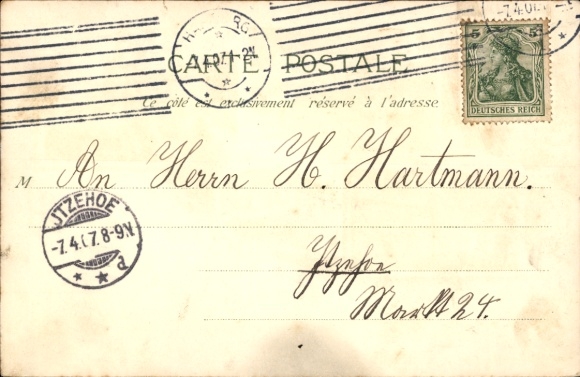 -7.4.07.
5 5
DEUTSCHES REICH
CARTE POSTALE
Ce côté est exclusivement réservé à l'adresse
M An Herrn H. Hartmann.
JTZEHOE
-7.4.07.8-9N.
Itzehoe
Markt 24.